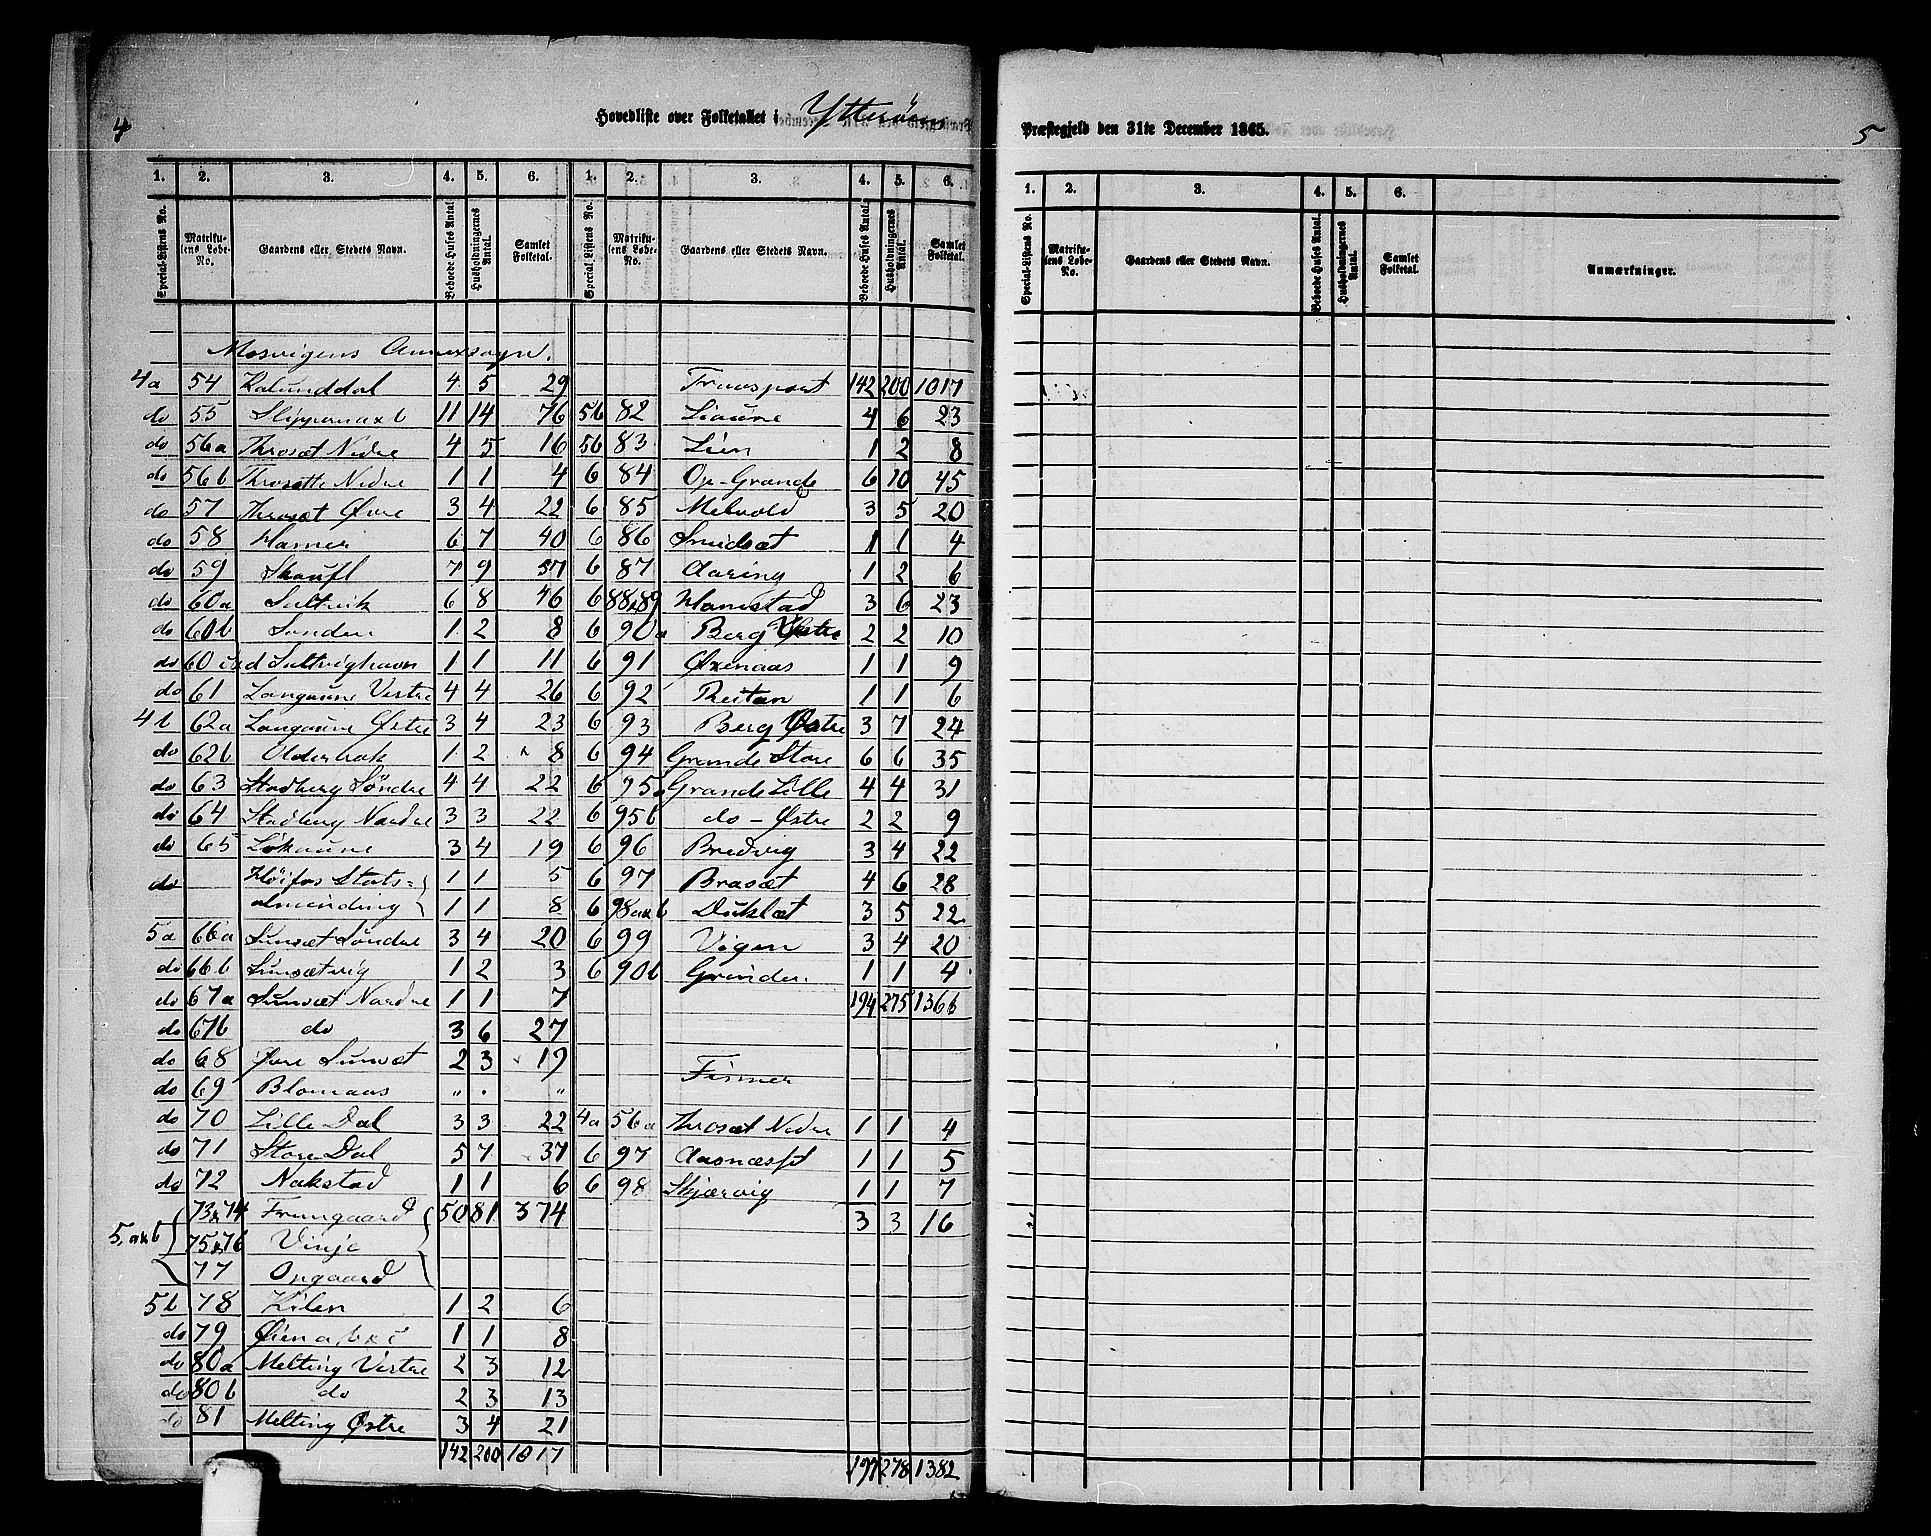 4
Hovedliste over Folketallet i Ytterøens
1. 2. 3. 4. 5. 6. 1. 2. 3. 4. 5. 6.
Special-Listens No. Matrikulens Løbe-No. Gaardens eller Stedets Navn. Beboede Huses Antal. Husholdningernes Antal. Samlet Folketal. Special-Listens No. Matrikulens Løbe-No. Gaardens eller Stedets Navn. Beboede Huses Antal. Husholdningernes Antal. Samlet Folketal.
Mosvigens Annexsogn.
4a 54 Kalunddal 4 5 29
do 55 Slipperaxb 11 14 76
do 56a Throsæt Nedre 4 5 16
do 56b Throsætte Nedre 1 1 4
do 57 Throsæt Øvre 3 4 22
do 58 Hamer 6 7 40
do 59 Skaufl 7 9 57
do 60a Sultvik 6 8 46
do 60b Sanden 1 2 8
do 60 c&d Sultvighavn 1 1 11
do 61 Langaune Vestre 4 4 26
4b 62a Langaune Østre 3 4 23
do 62b Olderbak 1 2 8
do 63 Stadberg Söndre 4 4 22
do 64 Stadberg Nordre 3 3 22
do 65 Lökaune 3 4 19
do Höifos Stats- 1 1 5
almending 1 1 8
5a 66a Sunsæt Söndre 3 4 20
do 66b Sunsætvig 1 2 3
do 67a Sunsæt Nordre 1 1 7
do 67b do 3 6 27
do 68 Øvre Sunsæt 2 3 19
do 69 Blomaas " . "
do 70 Lille Dal 3 3 22
do 71 Store Dal 5 7 37
do 72 Nakstad 1 1 6
73x74 Framgaard 50 81 374
5, axb 75x76 Vinje
77 Opgaard
5b 78 Kilen 1 2 6
do 79 Øien a, b x c 1 1 8
do 80a Melting Vestre 2 3 12
do 80b do 2 3 13
do 81 Melting Østre 3 4 21
142 200 1017
Transport 142 200 1017
5b 82 Liaune 4 6 23
5b 83 Lien 1 2 8
6 84 Op-Grande 6 10 45
6 85 Melvold 3 5 20
6 86 Smidsæt 1 1 4
6 87 Aaring 1 2 6
6 88x89 Hamstad 3 6 23
6 90a Berg Vestre 2 2 10
6 91 Øxenaas 1 1 9
6 92 Reitan 1 1 6
6 93 Berg Østre 3 7 24
6 94 Grande Store 6 6 35
6 95a Grande Lille 4 4 31
6 95b do - Østre 2 2 9
6 96 Bredvig 3 4 22
6 97 Brasæt 4 6 28
6 98axb Duklæt 3 5 22
6 99 Vigen 3 4 20
6 90b Grinden 1 1 4
194 275 1366
Finner
4a 56a Throsæt Nedre 1 1 4
6 97 Aasnæsset 1 1 5
6 98 Skjærvig 1 1 7
3 3 16
197 278 1382
Præstegjeld den 31te December 1865.
5
1. 2. 3. 4. 5. 6.
Special-Listens No. Matrikulens Løbe-No. Gaardens eller Stedets Navn. Beboede Huses Antal. Husholdningernes Antal. Samlet Folketal. Anmærkninger.